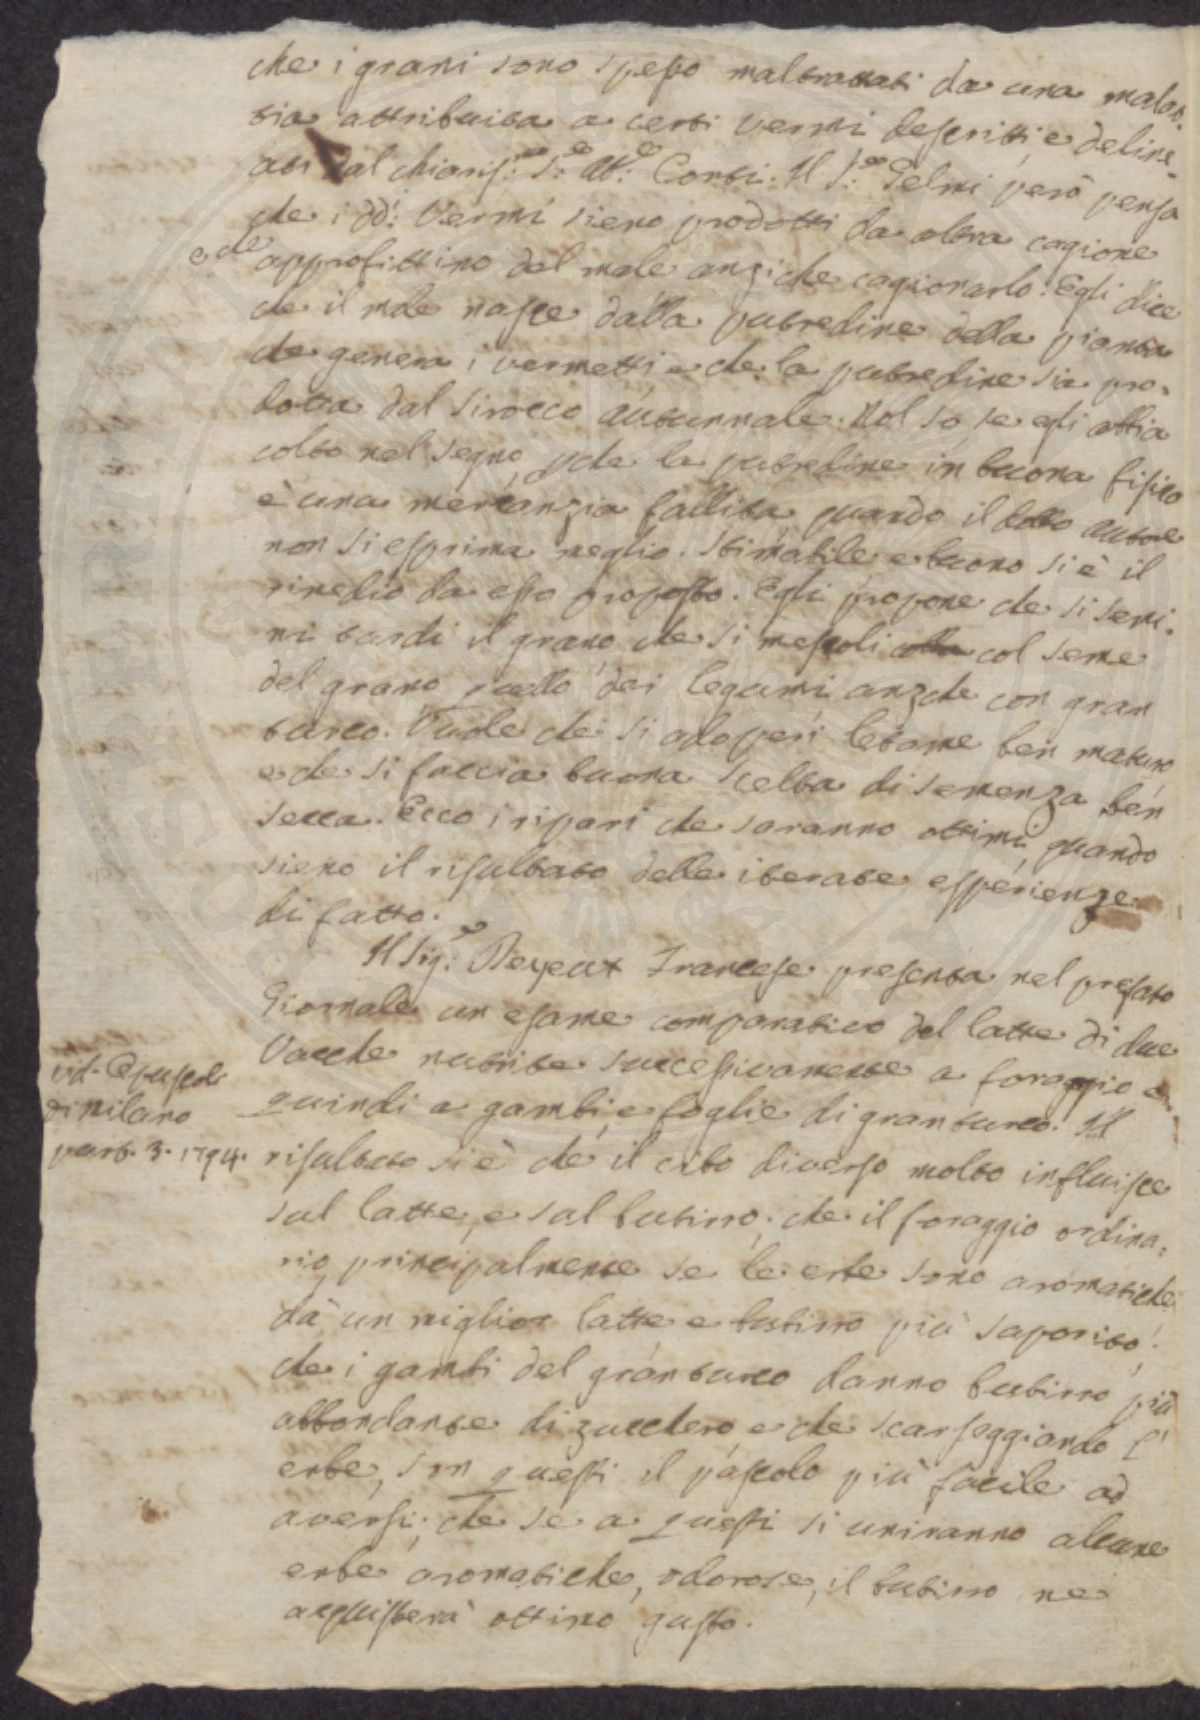 che i grani sono spesso maltrattati da una malat-
tia attribuita a certi vermi descritti e deline-
ati dal chiaris:mo S:r Ab:e Corti. Il S:r Gelmi però pensa
che i dd.i vermi sieno prodotti da altra cagione
e che approfittino del male anziche cagionarlo. Egli dice
che il male nasce dalla putredine della pianta
che genera i vermetti e che la putredine sia pro-
dotta dal sirocco autunnale. Nol so, se egli abbia
colto nel segno, pche la putredine in buona fisica
è una mercanzia fallita, quando il dotto autore
non si esprima meglio. Stimabile e buono si è il
rimedio da esso proposto. Egli propone che si semi-
ni tardi il grano che si mescoli colla col seme
del grano quello dei legumi anzche con gran
turco. Vuole che si adoperi letame ben maturo
e che si faccia buona scelta di semenza ben
secca. Ecco i ripari che saranno ottimi, quando
sieno il risultato delle iterate esperienze
di fatto.
Il Sig:r Deyeux Francese presenta nel prefato
Giornale un esame comparativo del latte di due
Vacche nutrite successivamente a foraggio e
quindi a gambi, e foglie di granturco. Il
vid. Opuscoli
di Milano
part. 3. 1794.
risultato si è che il cibo diverso molto influisce
sul latte, e sul butirro; che il foraggio ordina-
rio, principalmente se le erbe sono aromatiche
dà un miglior latte e butirro più saporito;
che i gambi del granturco danno butirro più
abbondante di zucchero e che scarseggiando l'
erbe, son questi il pascolo più facile ad
aversi; che se a questi si uniranno alcune
erbe aromatiche, odorose, il butirro ne
acquisterà ottimo gusto.